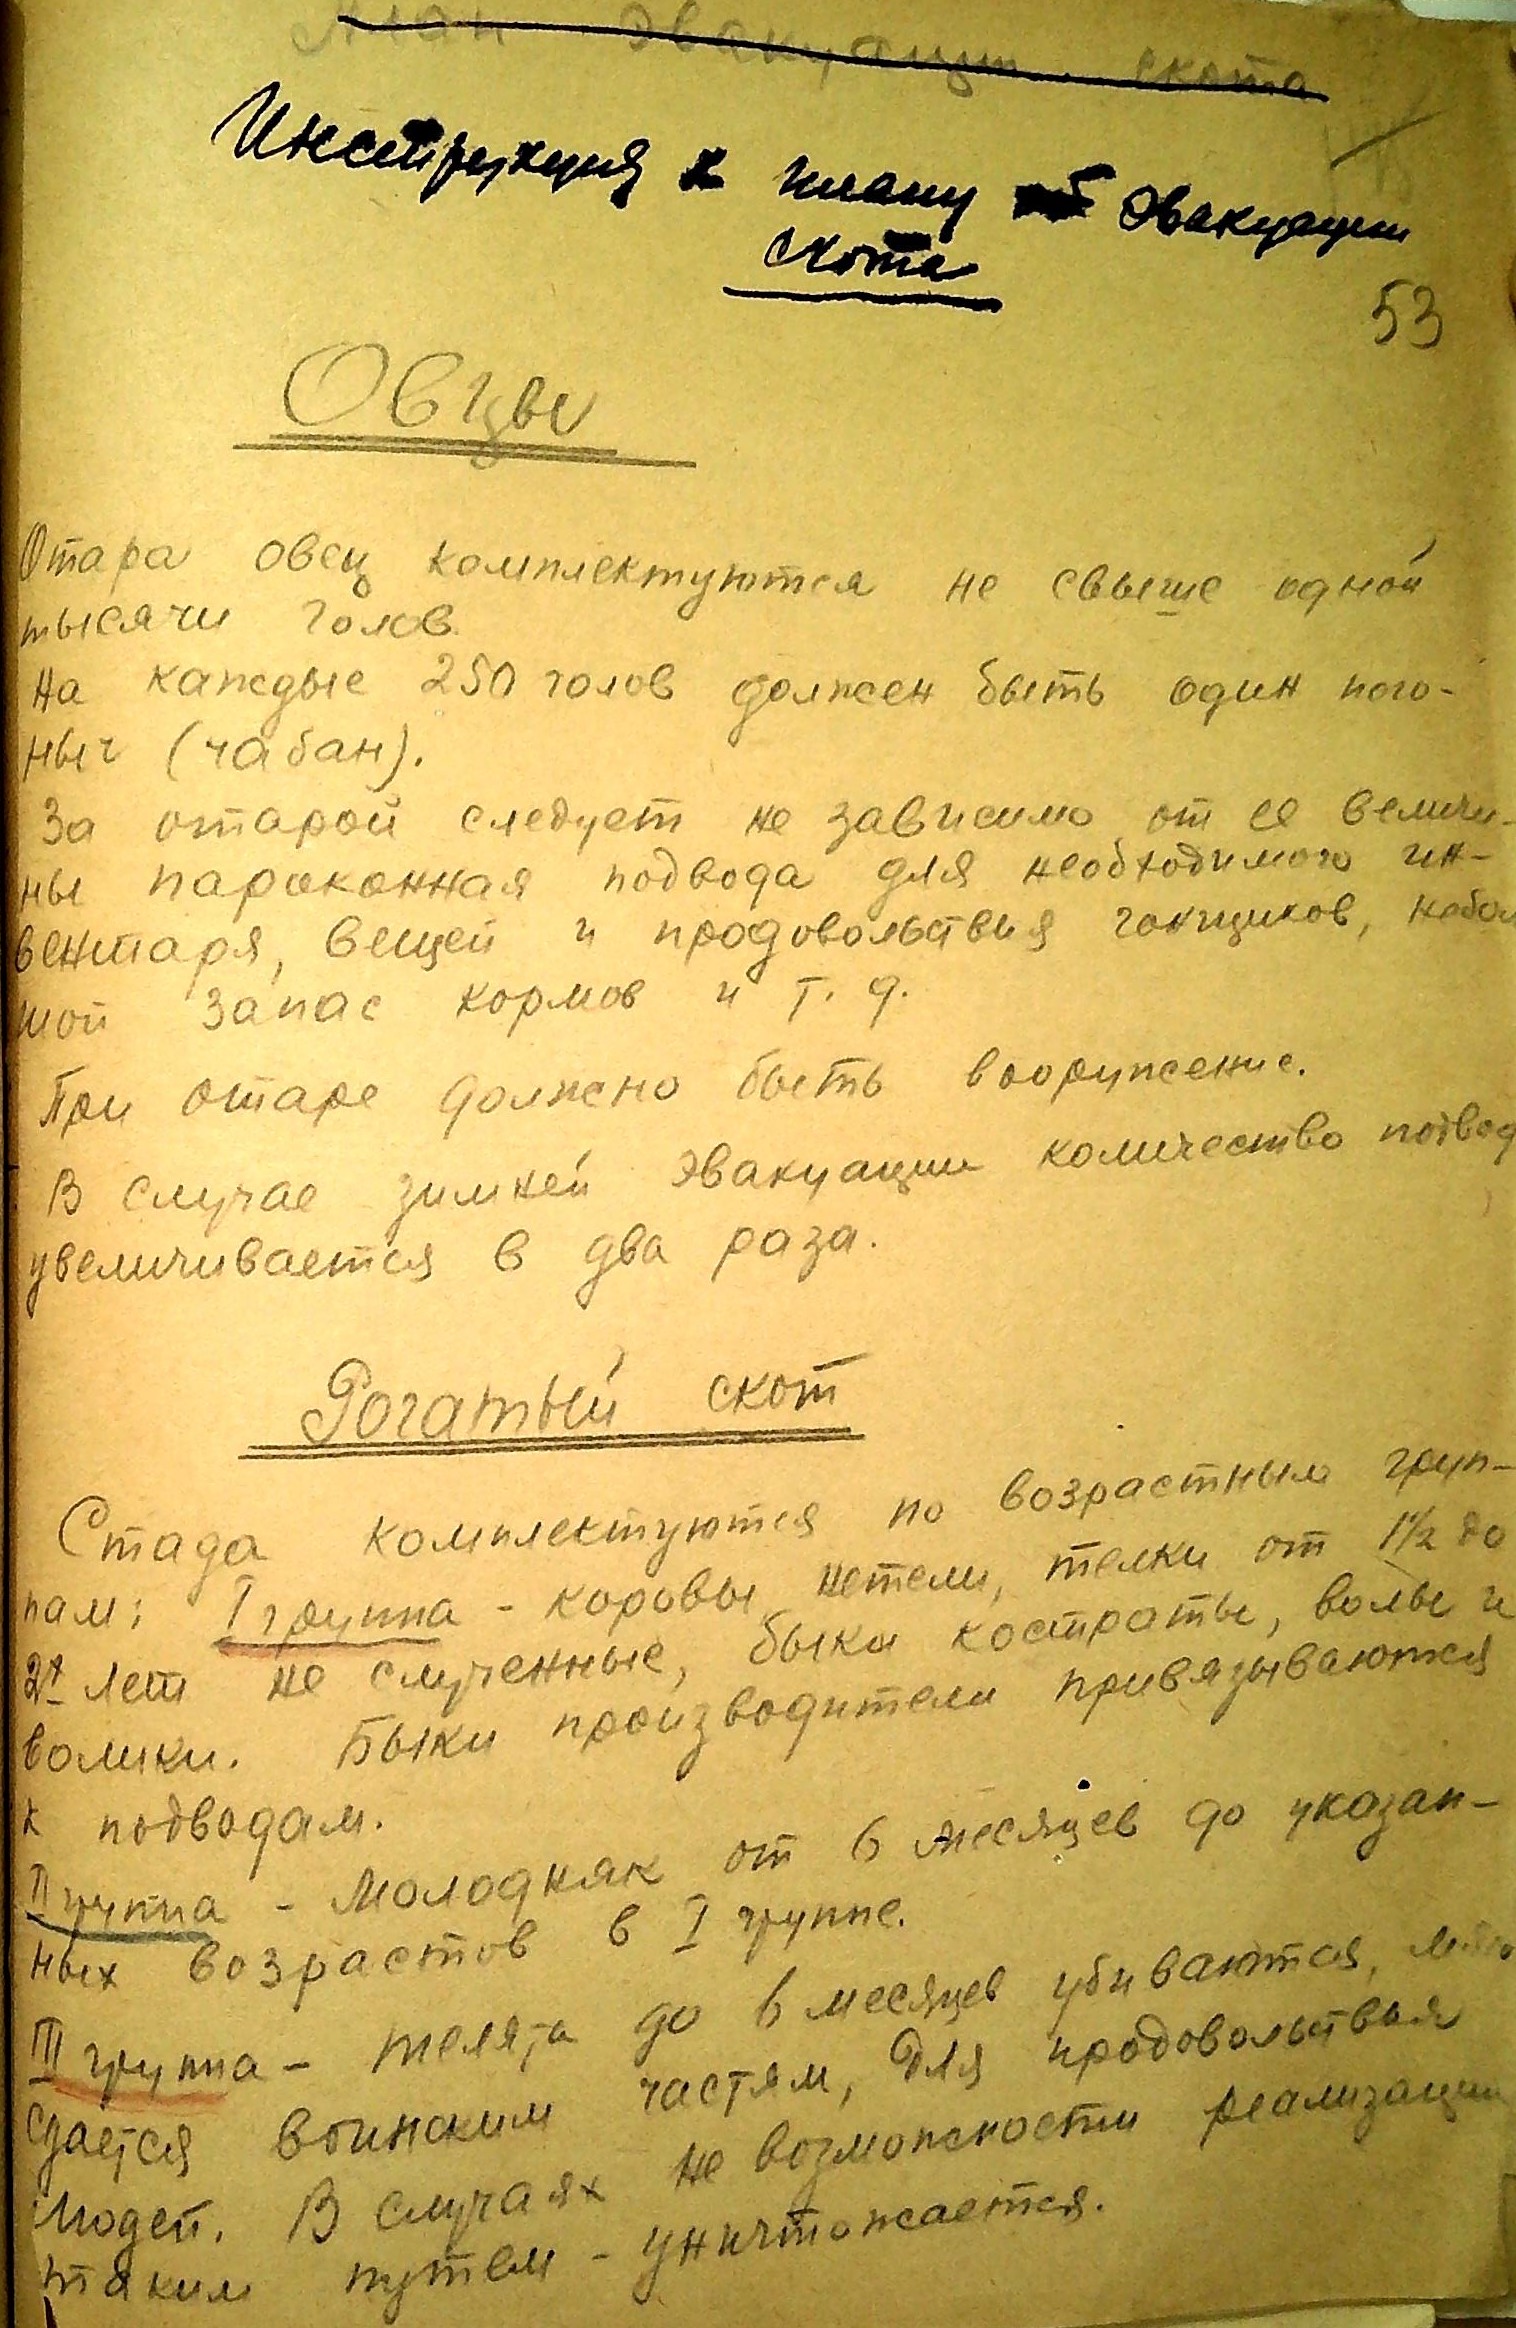 План эвакуации скота
Инструкция к плану эвакуации
скота
53
Овцы
Отара овец комплектуются не свыше одной
тысячи голов
На каждые 250 голов должен быть один пого-
ныч (чабан).
За отарой следует не зависимо от ее величи-
ны пароконная подвода для необходимого ин-
вентаря, вещей и продовольствия гонщиков, небол
шой запас кормов и т. д.
При отаре должно быть вооружение.
В случае зимней эвакуации количество подвод
увеличивается в два раза.
Рогатый скот
Стада комплектуются по возрастным груп-
пам: I группа - коровы, нетели, телки от 1½ до
2х лет не слученные, быки костраты, волы и
волики. Быки производители привязываются
к подводам.
II группа - Молодняк от 6 месяцев до указан-
ных возрастов в I группе.
III группа - телята до 6 месяцев убиваются, мясо
сдается воинским частям, для продовольствия
людей. В случаях не возможности реализации
таким путем - уничтожается.